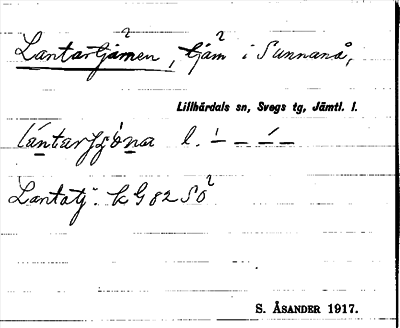 Lantartjärnen, tjärn i Sunnanå,
Lillhärdals sn, Svegs tg, Jämtl. l.
l.
Lantatj. k G 82 SÖ
S. ÅSANDER 1917.